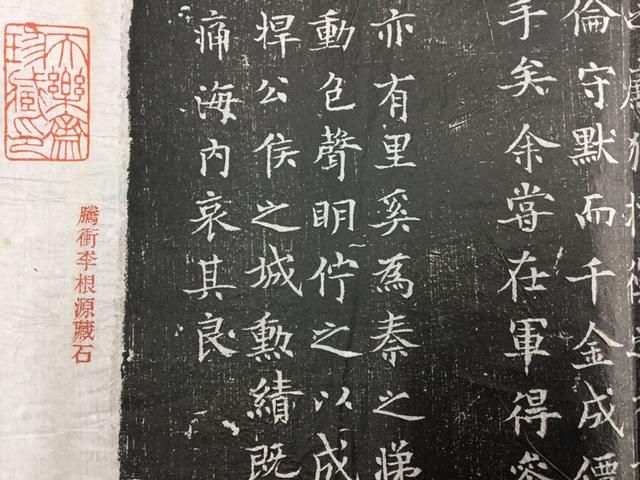 倫守默而千金成價
手矣余嘗在軍得參
亦有里奚為秦之悌
動色聲明佇之以成
捍公侯之城勳績既
痛海内哀其良
天樂齋
珍藏印
騰衝李根源藏石